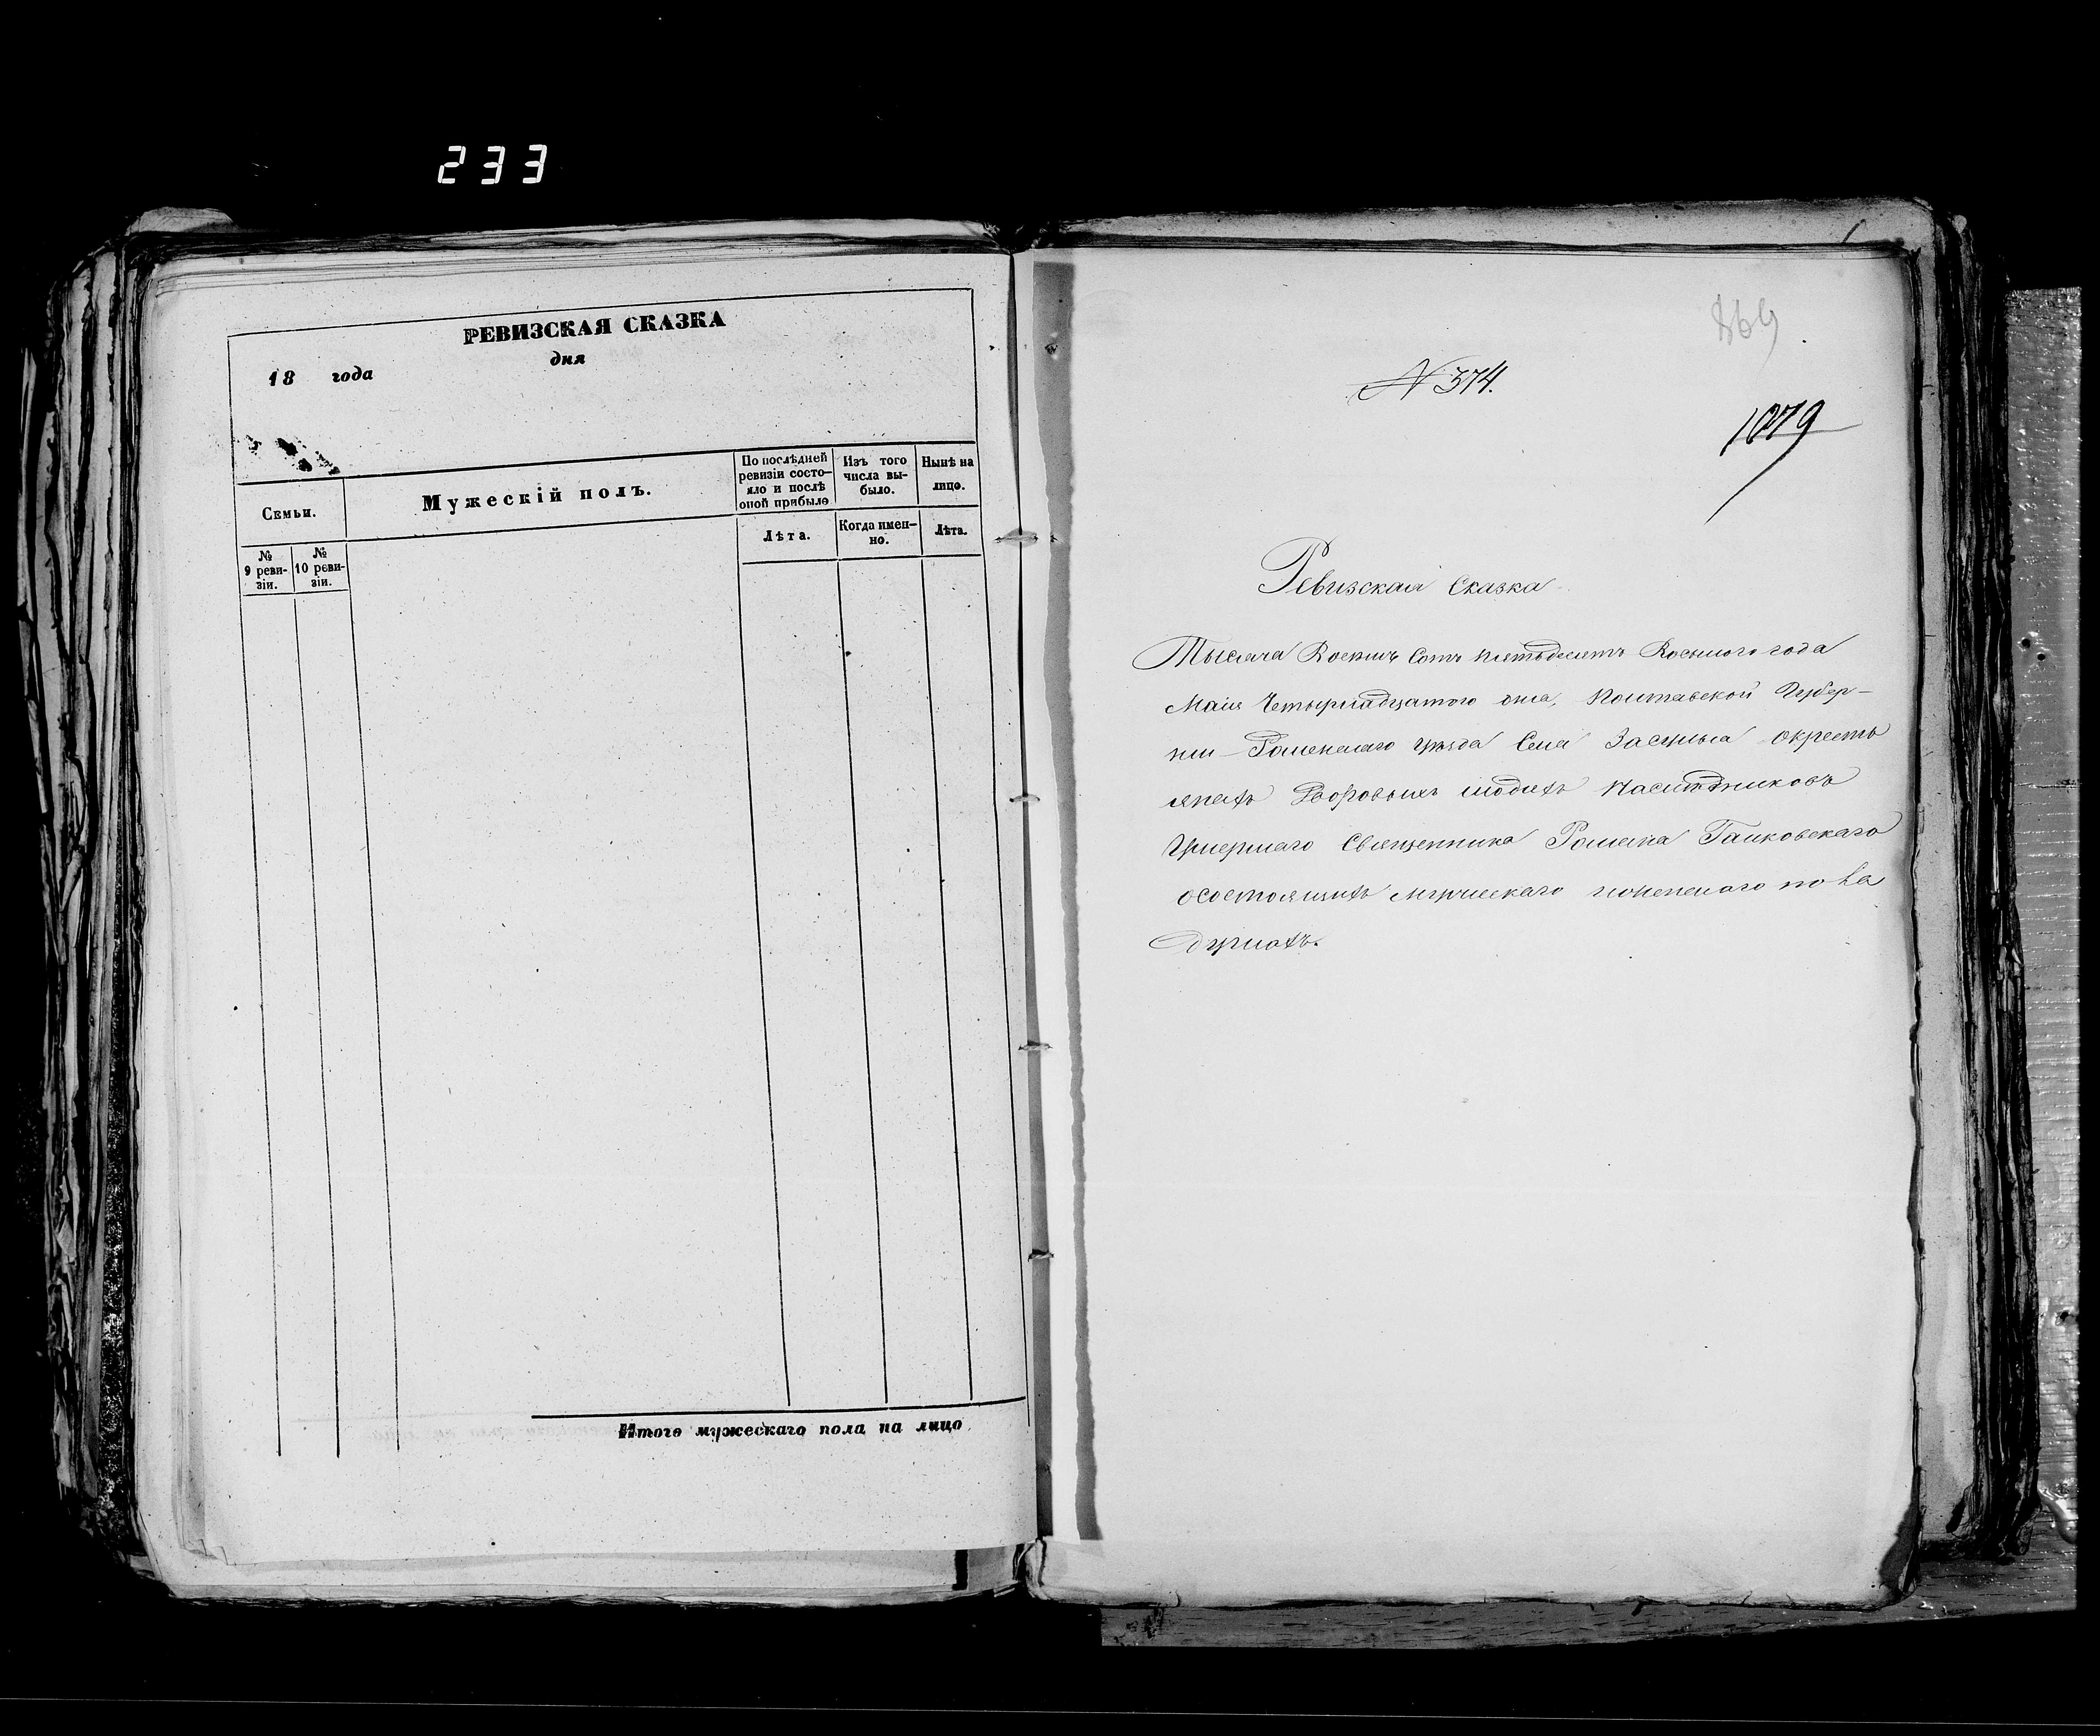 233
РЕВИЗСКАЯ СКАЗКА
дня
18 года
Семьи.
№ 9 реви-
зіи.
№ 10 реви-
зіи.
Мужескій полъ.
По послѣдней
ревизіи состо-
яло и послѣ
оной прибыло
Лѣта.
Изъ того
числа вы-
было.
Когда имен-
но.
Нынѣ на
лицо.
Лѣта.
Итого мужескаго пола на лицо
869
N 374.
1079
Ревизская Сказка
Тысяча Восемь Сотъ пятьдесятъ Восьмого года
Маія Четырнадцатого дня, Полтавской Губер-
ніи Роменскаго уѣзда Села Засулья окресть
янахъ Дворовыхъ людяхъ Наслѣдниковъ
Умершаго Священника Романа Галковскаго
осостоящихъ мужескаго иженскаго пола
душахъ.